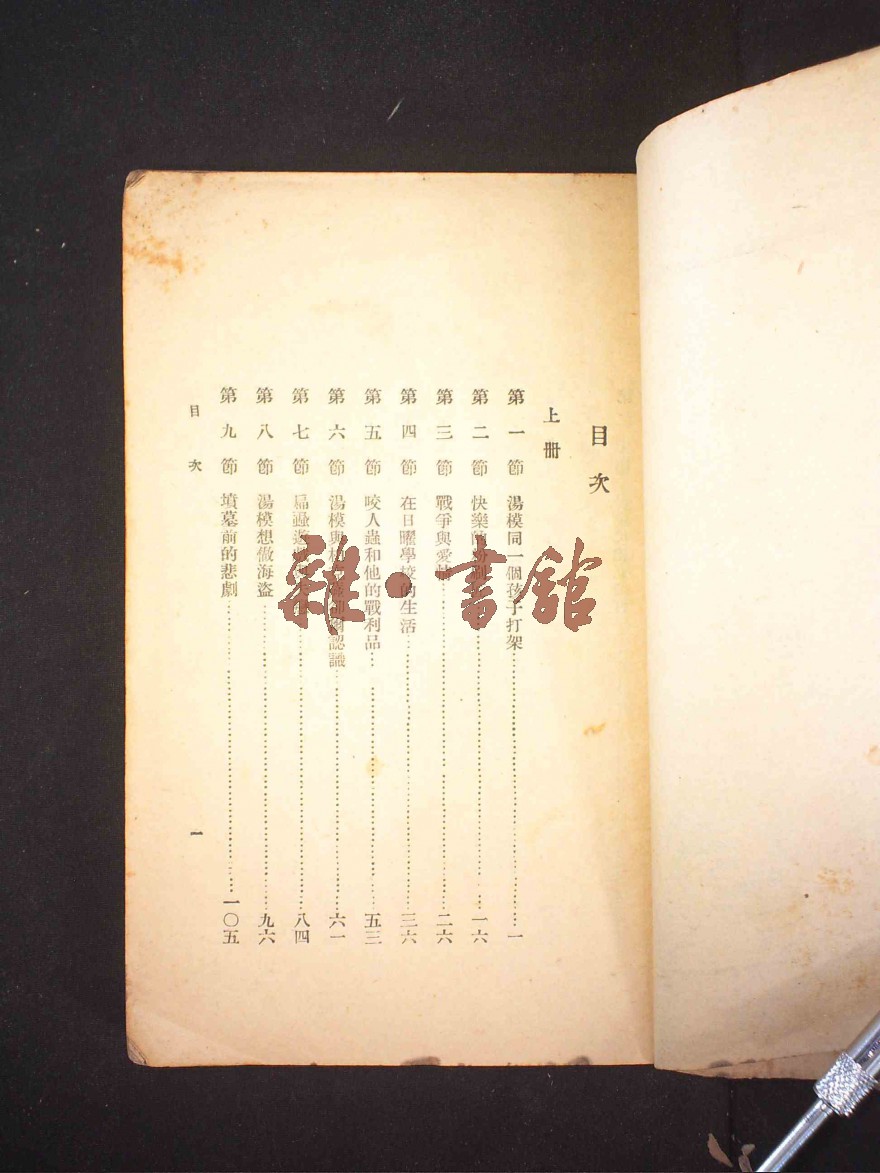 目次
上冊
第一節 湯模同一個孩子打架……一
第二節 快樂的粉刷……一六
第三節 戰爭與愛情……二六
第四節 在日曜學校的生活……三六
第五節 咬人蟲和他的戰利品……五三
第六節 湯模與 認識……六一
第七節 扁蝨……八四
第八節 湯模想做海盜……九六
第九節 墳墓前的悲劇……一〇五
目次
一
雜·書館